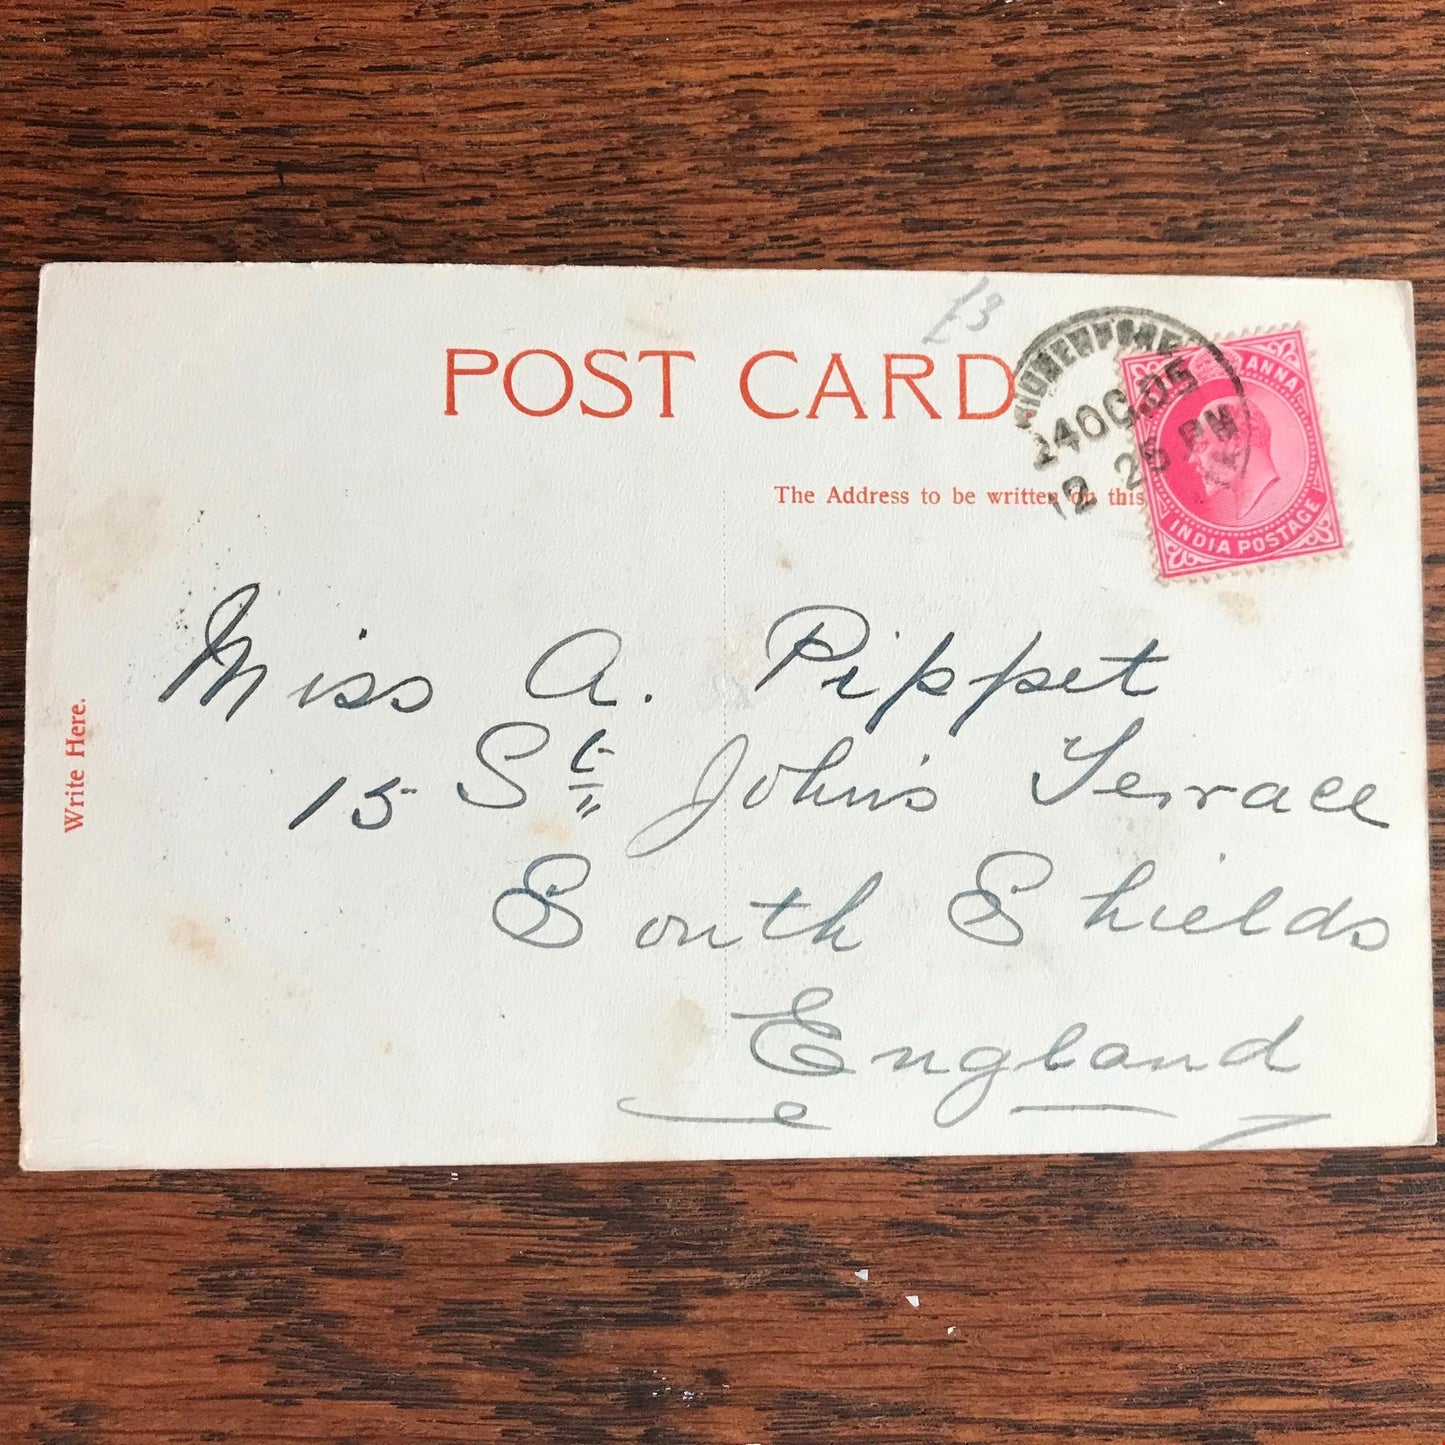 £3
POST CARD
24 OC.05
12 25 PM
ANNA
INDIA POSTAGE
The Address to be written on this
Write Here.
Miss A. Pippet
15 St John's Terrace
South Shields
England